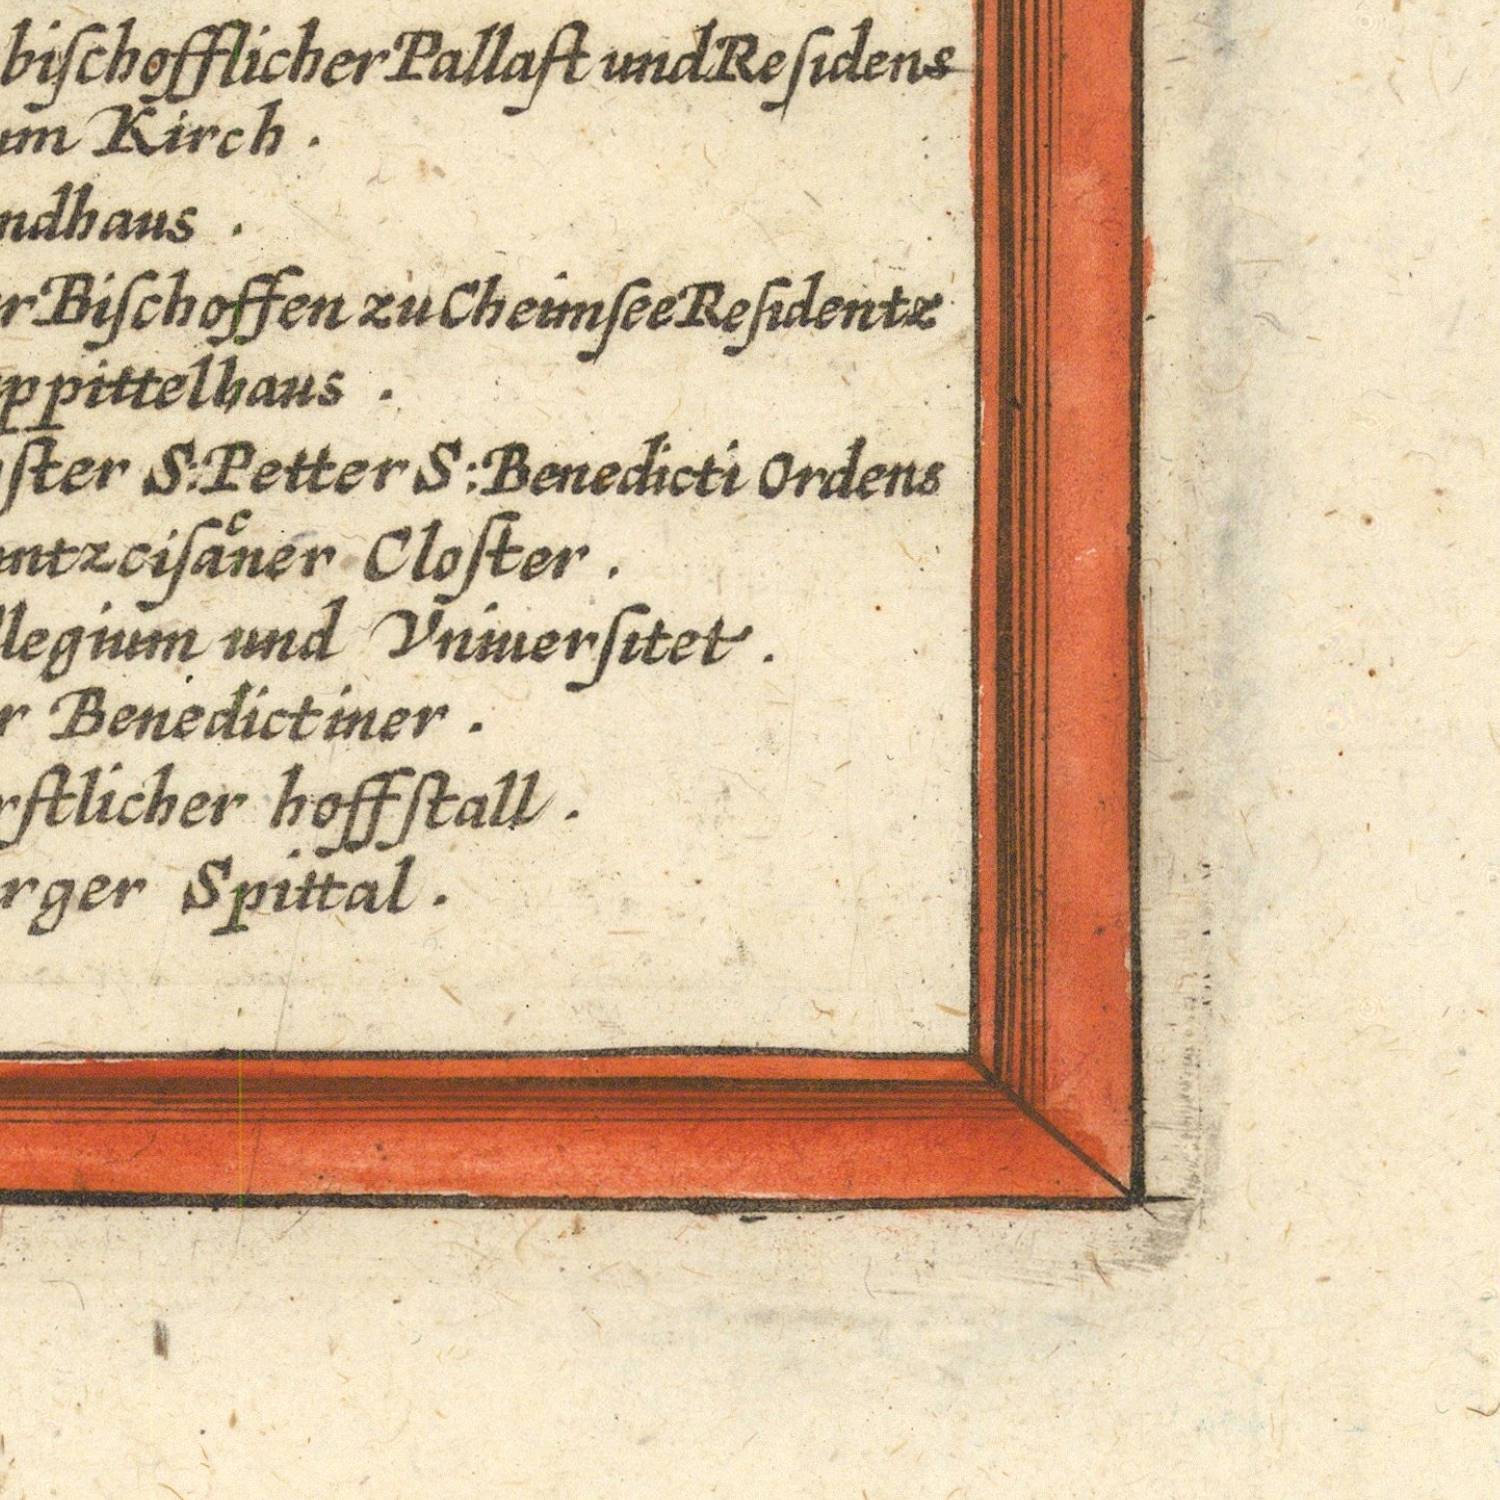 biſchofflicher Pallaſt und Reſidens
um Kirch .
ndhaus .
er Biſchoffen zu Cheimſee Reſidentz
ppittelhaus .
ſter S: Petter S: Benedicti Ordens
ntzciſaͤner Cloſter .
llegium und Vniuerſitet .
r Benedictiner .
rſtlicher hoffſtall .
rger Spittal .